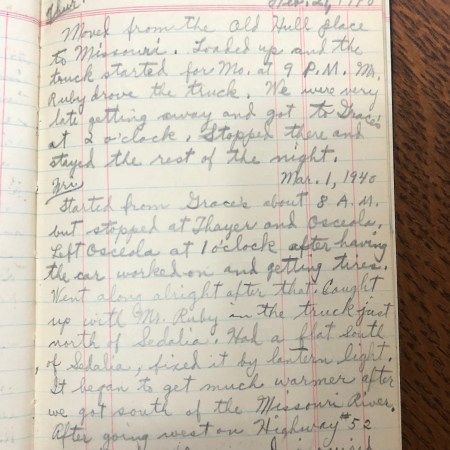 Thur.
Moved from the Old Hull place
to Missouri. Loaded up and the
truck started for Mo. at 9 P.M. Mr.
Ruby drove the truck. We were very
late getting away and got to Grace's
at 2 o'clock. Stopped there and
stayed the rest of the night.
Fri Mar. 1, 1940
Started from Grace's about 8 A.M.
but stopped at Thayer and Osceola.
Left Osceola at 1 o'clock after having
the car worked on and getting tires.
Went along alright after that. Caught
up with Mr. Ruby in the truck just
north of Sedalia. Had a flat south
of Sedalia, fixed it by lantern light.
It began to get much warmer after
we got south of the Missouri River.
After going west on Highway #52